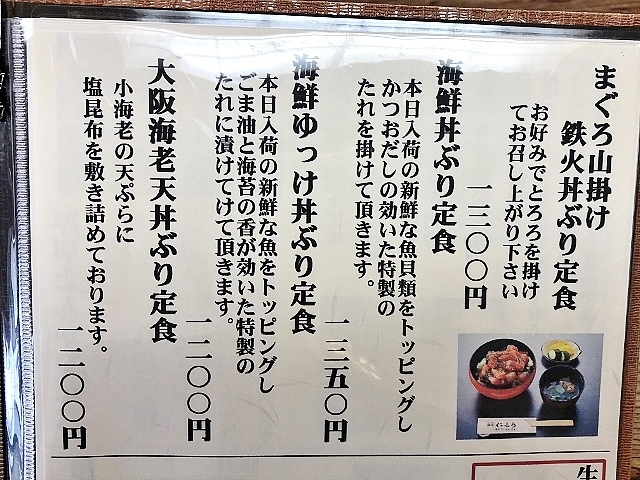 まぐろ山掛け
鉄火丼ぶり定食
お好みでとろろを掛け
てお召し上がり下さい
一三〇〇円
海鮮丼ぶり定食
本日入荷の新鮮な魚貝類をトッピングし
かつおだしの効いた特製の
たれを掛けて頂きます。
一三五〇円
海鮮ゆっけ丼ぶり定食
本日入荷の新鮮な魚をトッピングし
ごま油と海苔の香が効いた特製の
たれに漬けてけて頂きます。
一二〇〇円
大阪海老天丼ぶり定食
小海老の天ぷらに
塩昆布を敷き詰めております。
一二〇〇円
生